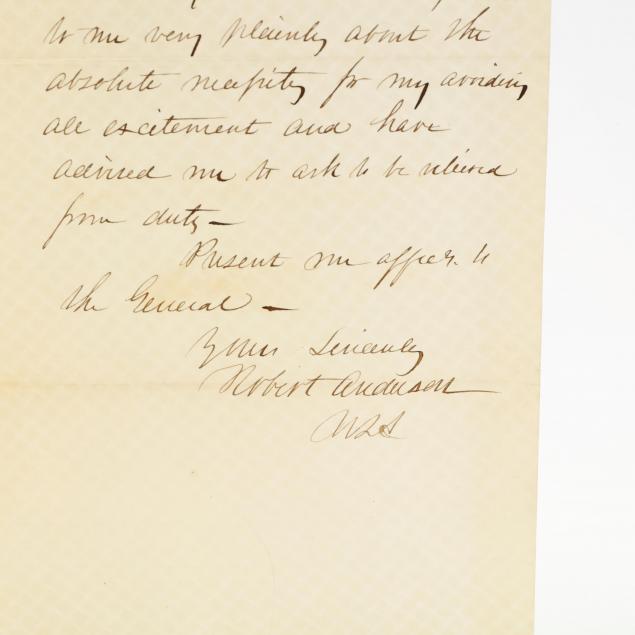 to me very plainly about the
absolute necessity for my avoiding
all excitement and have
advised me to ask to be relieved
from duty —
Present me affec. to
the General —
Yours Sincerely
Robert Anderson